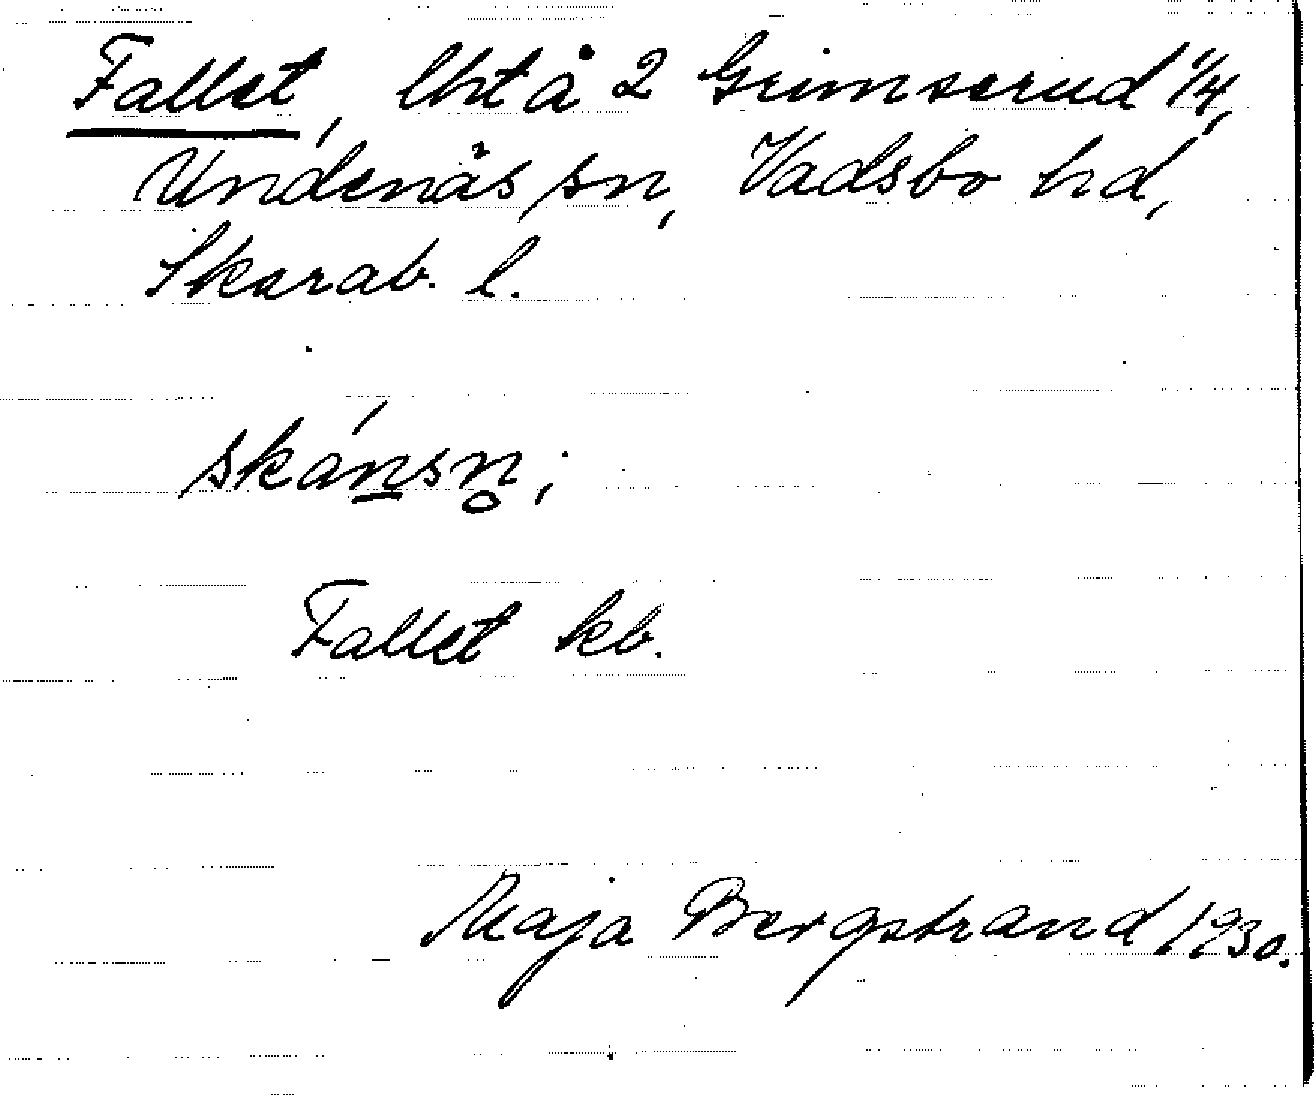 Fallet, lht å 2 Grimserud 1/4,
Undenäs sn, Vadsbo hd,
Skarab. l.
skánsn̥;
Fallet kb.
Maja Bergstrand 1930.